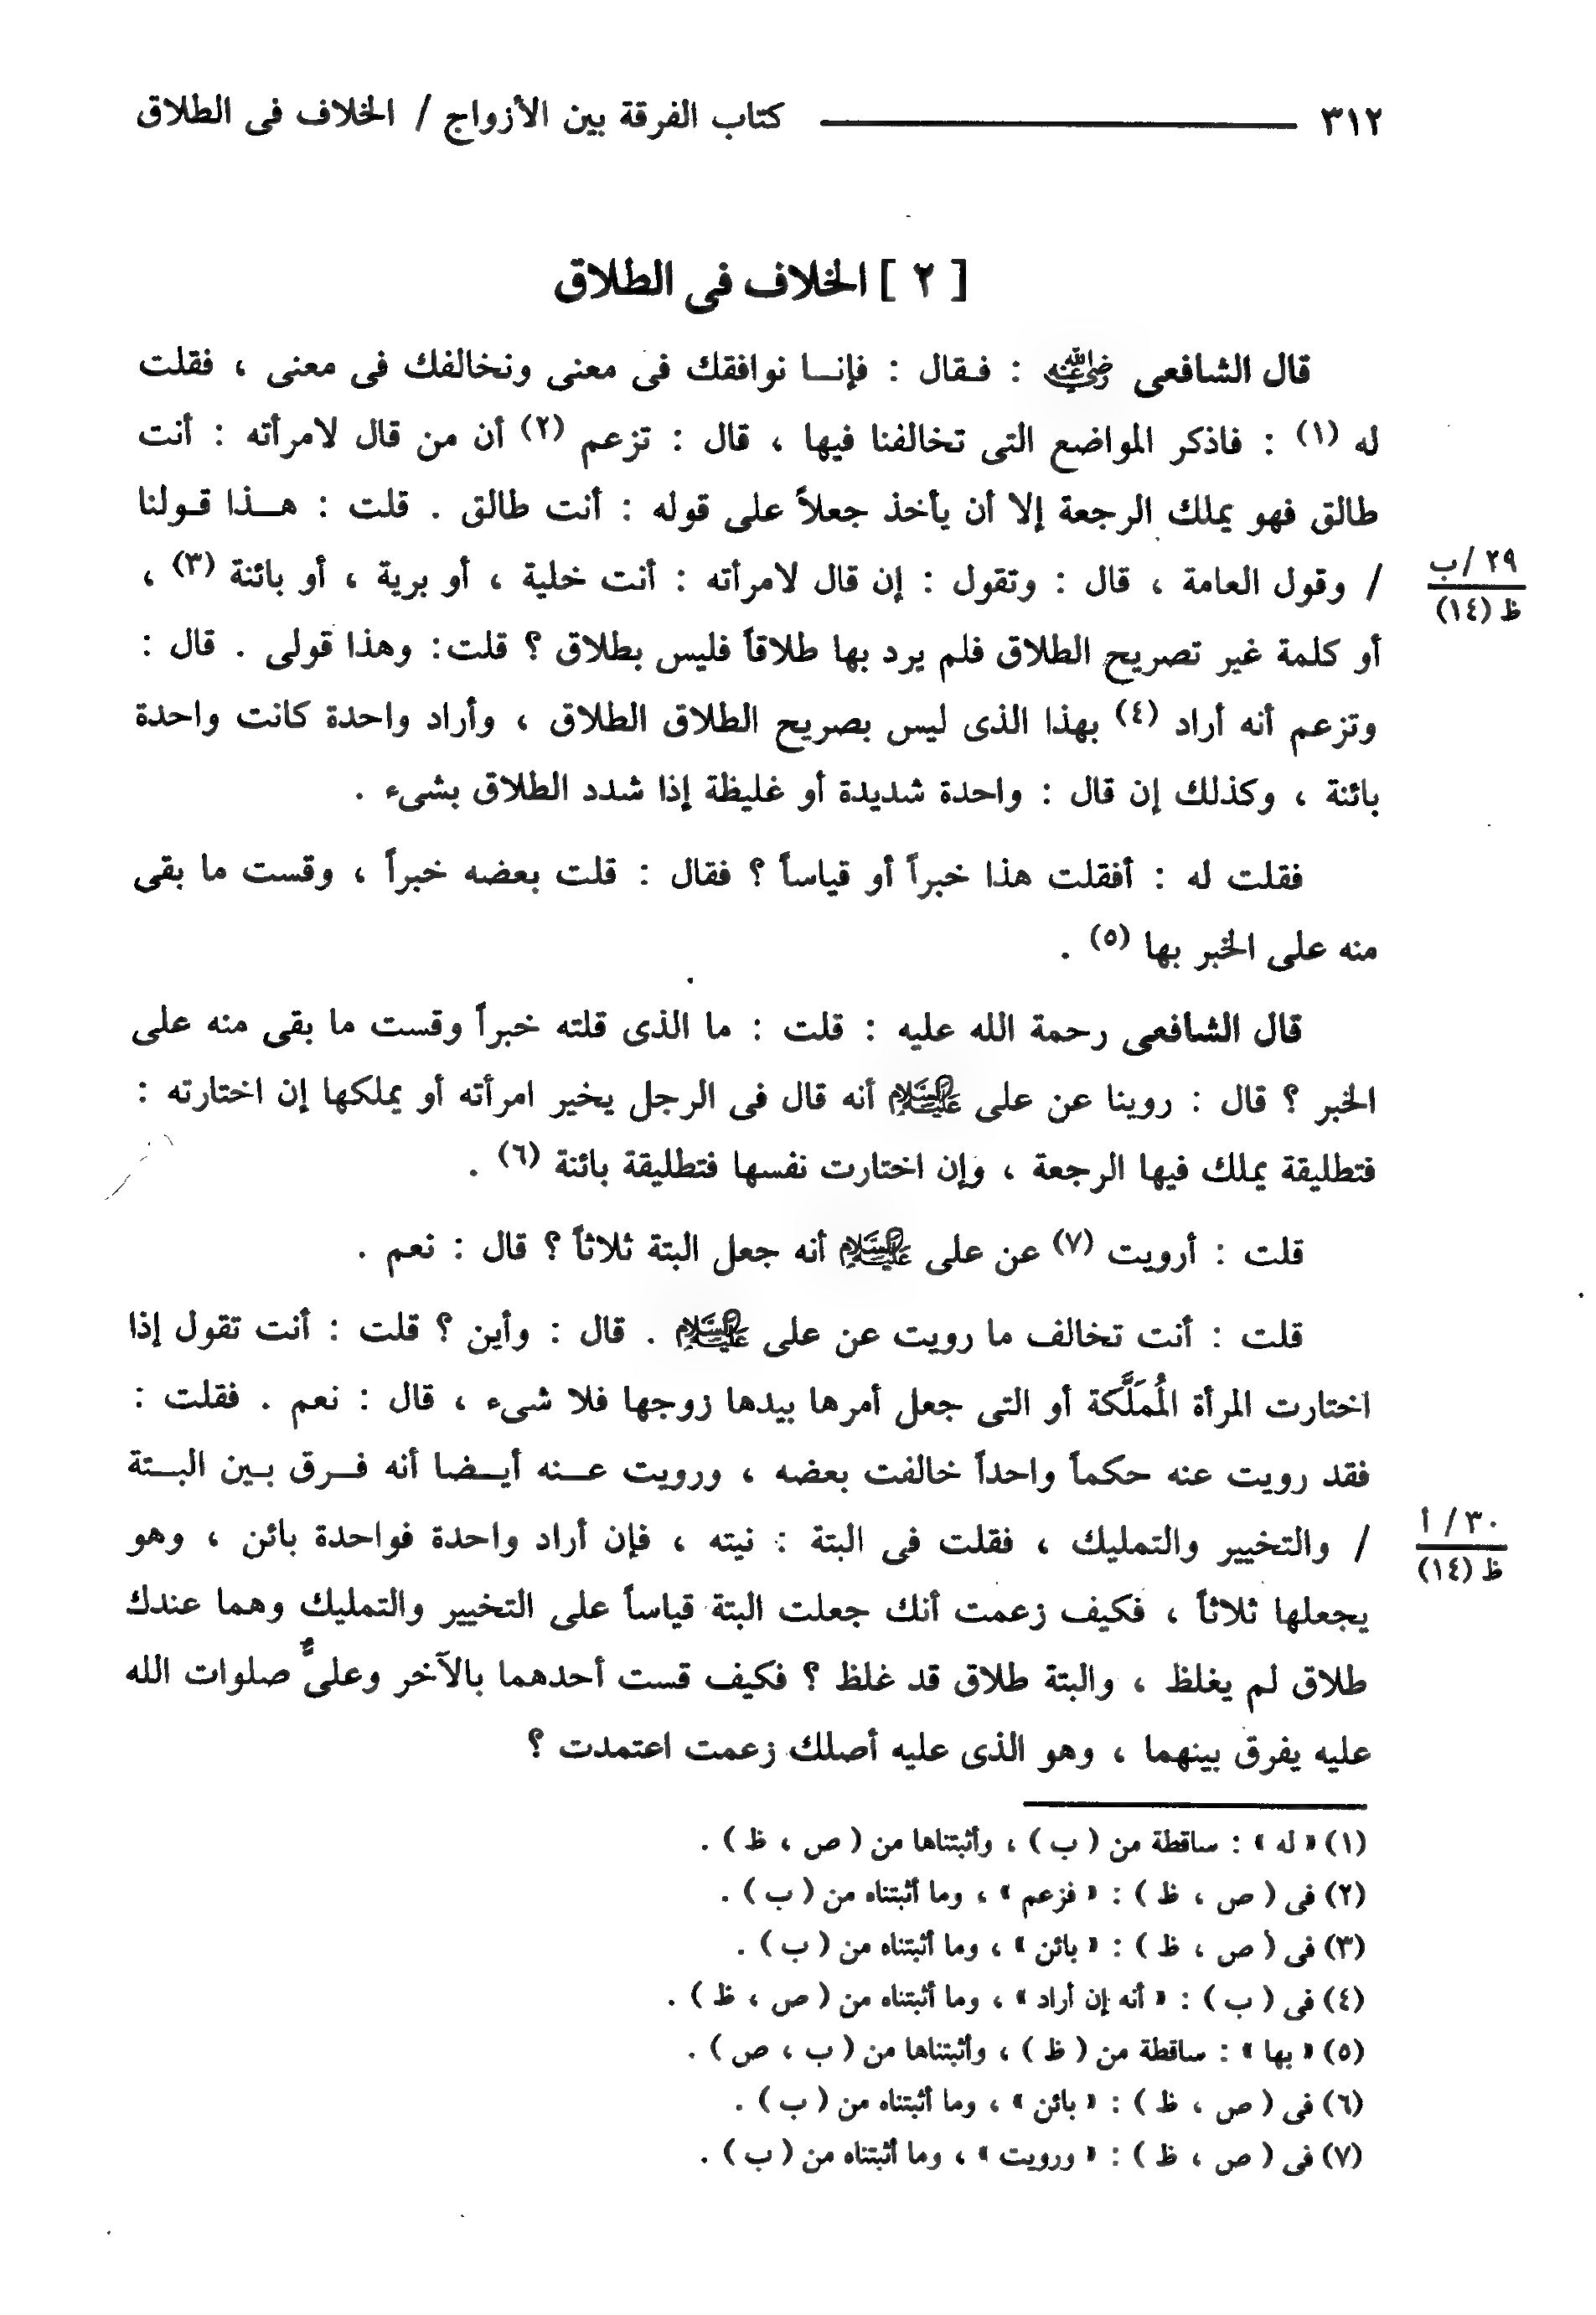 ٣١٢ كتاب الفرقة بين الأزواج / الخلاف فى الطلاق
[ ٢ ] الخلاف فى الطلاق
قال الشافعى رضي الله عنه : فقال : فإنا نوافقك فى معنى ونخالفك فى معنى ، فقلت
له (١) : فاذكر المواضع التى تخالفنا فيها ، قال : تزعم (٢) أن من قال لامرأته : أنت
طالق فهو يملك الرجعة إلا أن يأخذ جعلاً على قوله : أنت طالق . قلت : هذا قولنا
٢٩ /ب
ظ (١٤)
/ وقول العامة ، قال : وتقول : إن قال لامرأته : أنت خلية ، أو برية ، أو بائنة (٣) ،
أو كلمة غير تصريح الطلاق فلم يرد بها طلاقاً فليس بطلاق ؟ قلت : وهذا قولى . قال :
وتزعم أنه أراد (٤) بهذا الذى ليس بصريح الطلاق الطلاق ، وأراد واحدة كانت واحدة
بائنة ، وكذلك إن قال : واحدة شديدة أو غليظة إذا شدد الطلاق بشىء .
فقلت له : أفقلت هذا خبراً أو قياساً ؟ فقال : قلت بعضه خبراً ، وقست ما بقى
منه على الخبر بها (٥) .
قال الشافعى رحمة الله عليه : قلت : ما الذى قلته خبراً وقست ما بقى منه على
الخبر ؟ قال : روينا عن على عليه السلام أنه قال فى الرجل يخير امرأته أو يملكها إن اختارته :
فتطليقة يملك فيها الرجعة ، وإن اختارت نفسها فتطليقة بائنة (٦) .
قلت : أرويت (٧) عن على عليه السلام أنه جعل البتة ثلاثاً ؟ قال : نعم .
قلت : أنت تخالف ما رويت عن على عليه السلام . قال : وأين ؟ قلت : أنت تقول إذا
اختارت المرأة المُمَلَّكة أو التى جعل أمرها بيدها زوجها فلا شىء ، قال : نعم . فقلت :
فقد رويت عنه حكماً واحداً خالفت بعضه ، ورويت عنه أيضا أنه فرق بين البتة
٣٠ / أ
ظ (١٤)
/ والتخيير والتمليك ، فقلت فى البتة : نيته ، فإن أراد واحدة فواحدة بائن ، وهو
يجعلها ثلاثاً ، فكيف زعمت أنك جعلت البتة قياساً على التخيير والتمليك وهما عندك
طلاق لم يغلظ ، والبتة طلاق قد غلظ ؟ فكيف قست أحدهما بالآخر وعلىٌّ صلوات الله
عليه يفرق بينهما ، وهو الذى عليه أصلك زعمت اعتمدت ؟
(١) « له » : ساقطة من ( ب ) ، وأثبتناها من ( ص ، ظ ) .
(٢) فى ( ص ، ظ ) : « فزعم » ، وما أثبتناه من ( ب ) .
(٣) فى ( ص ، ظ ) : « بائن » ، وما أثبتناه من ( ب ) .
(٤) فى ( ب ) : « أنه إن أراد » ، وما أثبتناه من ( ص ، ظ ) .
(٥) « بها » : ساقطة من ( ظ ) ، وأثبتناها من ( ب ، ص ) .
(٦) فى ( ص ، ظ ) : « بائن » ، وما أثبتناه من ( ب ) .
(٧) فى ( ص ، ظ ) : « ورويت » ، وما أثبتناه من ( ب ) .